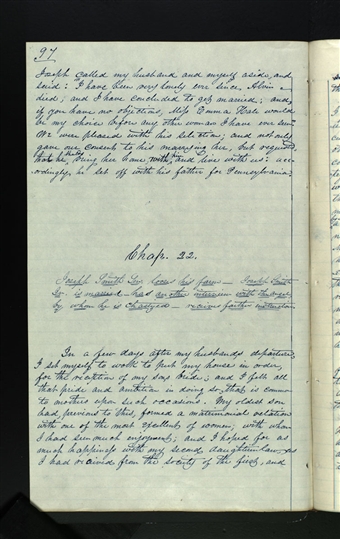 97
Joseph called my husband and myself aside, and
said: I have been very lonely ever since, Alvin
died; and I have concluded to get married; and
if you have no objections, Miss Emma Hale would
be my choice before any other woman I have ever seen
We were pleased with his selection; and not only
gave our consent to his marrying her, but requested
that he, bring her home with, and live with us: acc-
-ordingly, he set off with his father for Pennsylvania.
Chap. 22.
Joseph Smith Sen loses his farm — Joseph Smith
Jr. is married — has another interview with the angel
by whom he is Chastized — receives further instruction
In a few days after my husband's departure,
I set myself to work to put my house in order,
for the reception of my sons bride; and I felt all
that pride and ambition in doing so, that is common
to mothers upon such occasions. My oldest son
had previous to this, formed a matrimonial relation
with one of the most excellent of women; with whom
I had seen much enjoyment; and I hoped for as
much happiness with my second daughterinlaw, as
I had received from the society of the first, and